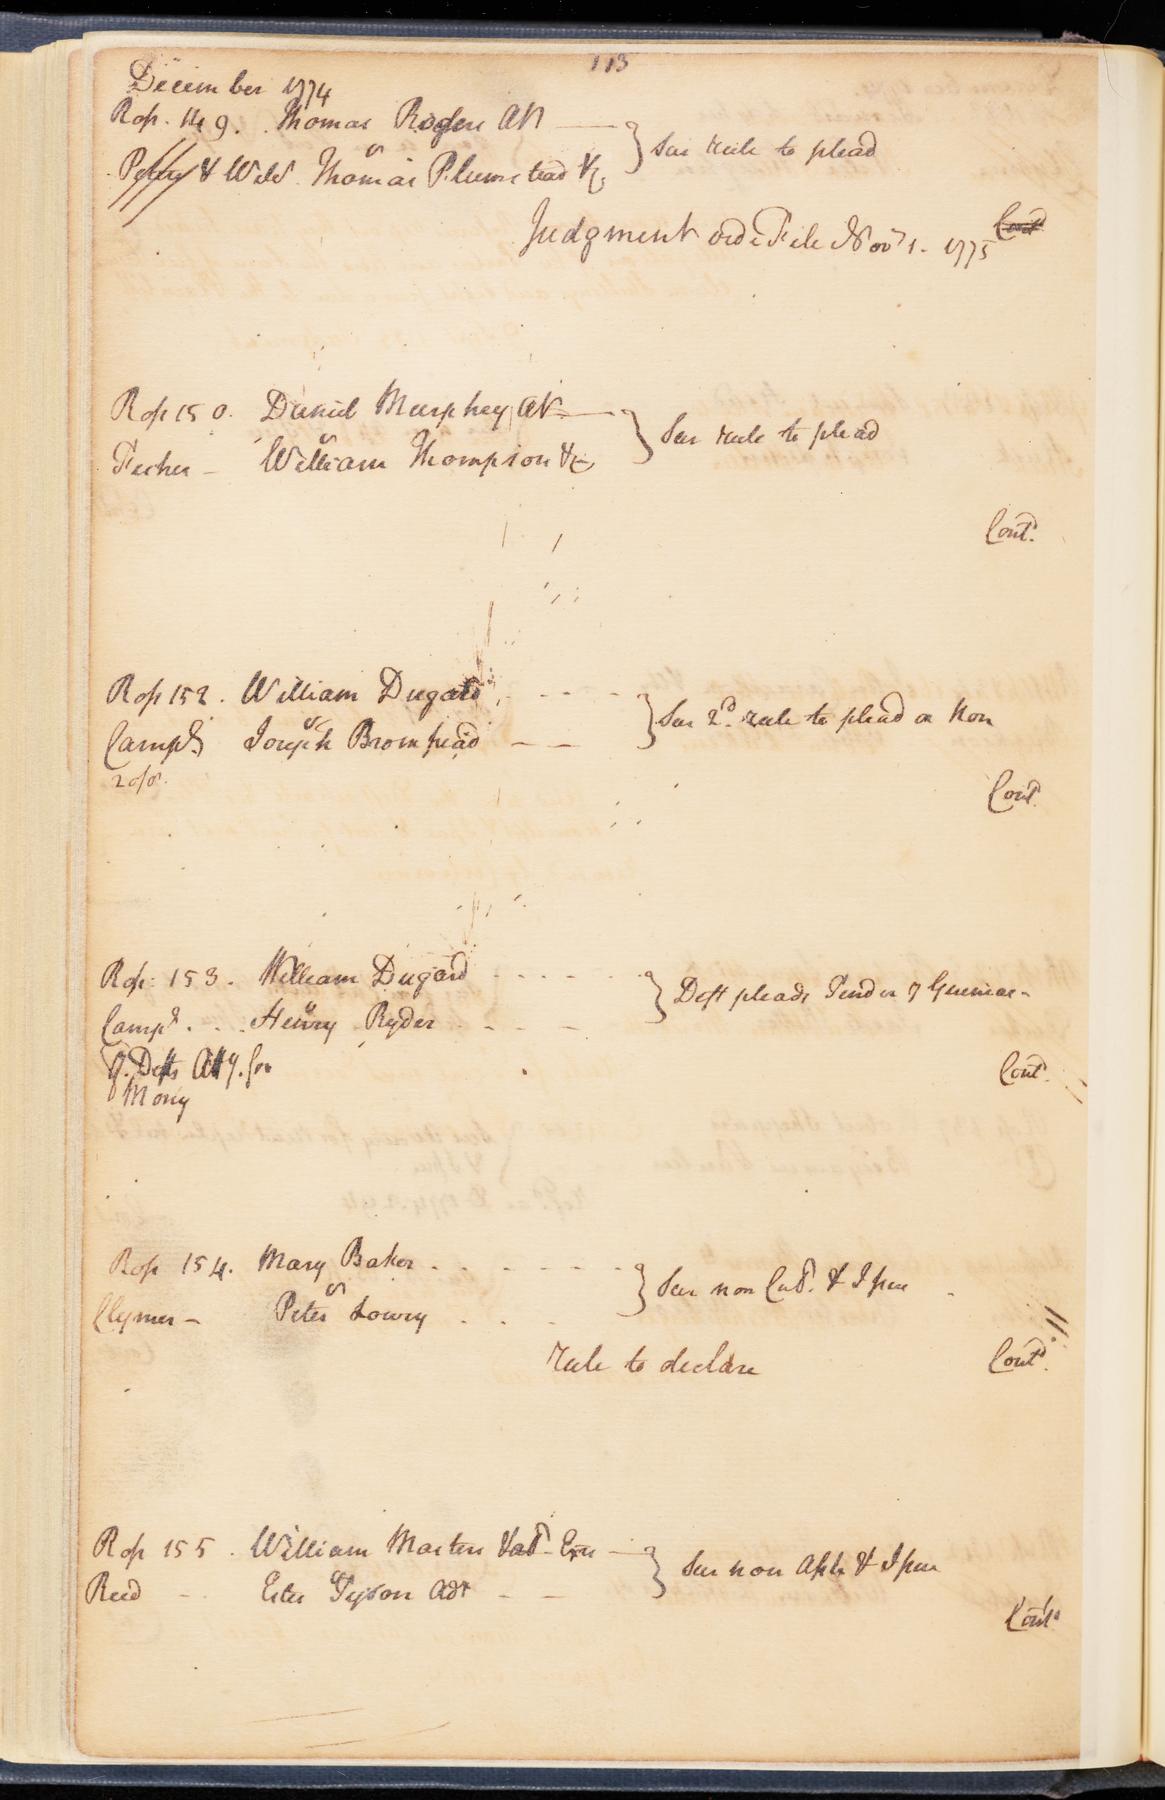 113
December 1774
Rop. 149. Thomas Rogers ats
vs
Petty & Wild. Thomas Plumstead &c
} Sur rule to plead
Judgment vide File Nov 1. 1775 Cont
Rop 150. Daniel Murphey ats
vs
Fisher - William Thompson &c
} Sur rule to plead
Contd.
Rop 152. William Dugard
vs
Campd. Joseph Bromfead
} Sur 2d. rule to plead or Non
Contd
Rop: 153. William Dugard
vs
Campd. Henry Ryder
} Deft pleads Tender &
q. Defts Atty. for
Mony
Contd.
Rop 154. Mary Baker
vs
Clymer - Peter Lowry
} Sur non Cul. & Issue
rule to declare Contd.
Rop 155. William Marten
vs
Reed - Tyson Adr
} Sur non & Issue
Contd